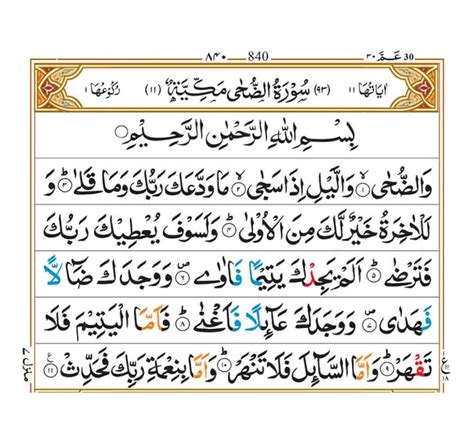 ۸۴۰ 840 ۳۰ عَمَّ 30
اٰيَاتُهَا ۱۱ (۹۳) سُوْرَةُ الضُّحٰى مَكِّيَّةٌ (۱۱) رُكُوْعُهَا ۱
بِسْمِ اللهِ الرَّحْمٰنِ الرَّحِيْمِ
وَالضُّحٰى ۱ وَالَّيْلِ اِذَا سَجٰى ۲ مَا وَدَّعَكَ رَبُّكَ وَمَا قَلٰى ۳ وَ
لَلْاٰخِرَةُ خَيْرٌ لَّكَ مِنَ الْاُوْلٰى ۴ وَلَسَوْفَ يُعْطِيْكَ رَبُّكَ
فَتَرْضٰى ۵ اَلَمْ يَجِدْكَ يَتِيْمًا فَاٰوٰى ۶ وَوَجَدَكَ ضَآلًّا
فَهَدٰى ۷ وَوَجَدَكَ عَآئِلًا فَاَغْنٰى ۸ فَاَمَّا الْيَتِيْمَ فَلَا
تَقْهَرْ ۹ وَاَمَّا السَّآئِلَ فَلَا تَنْهَرْ ۱۰ وَاَمَّا بِنِعْمَةِ رَبِّكَ فَحَدِّثْ ۱۱
منزل ۷